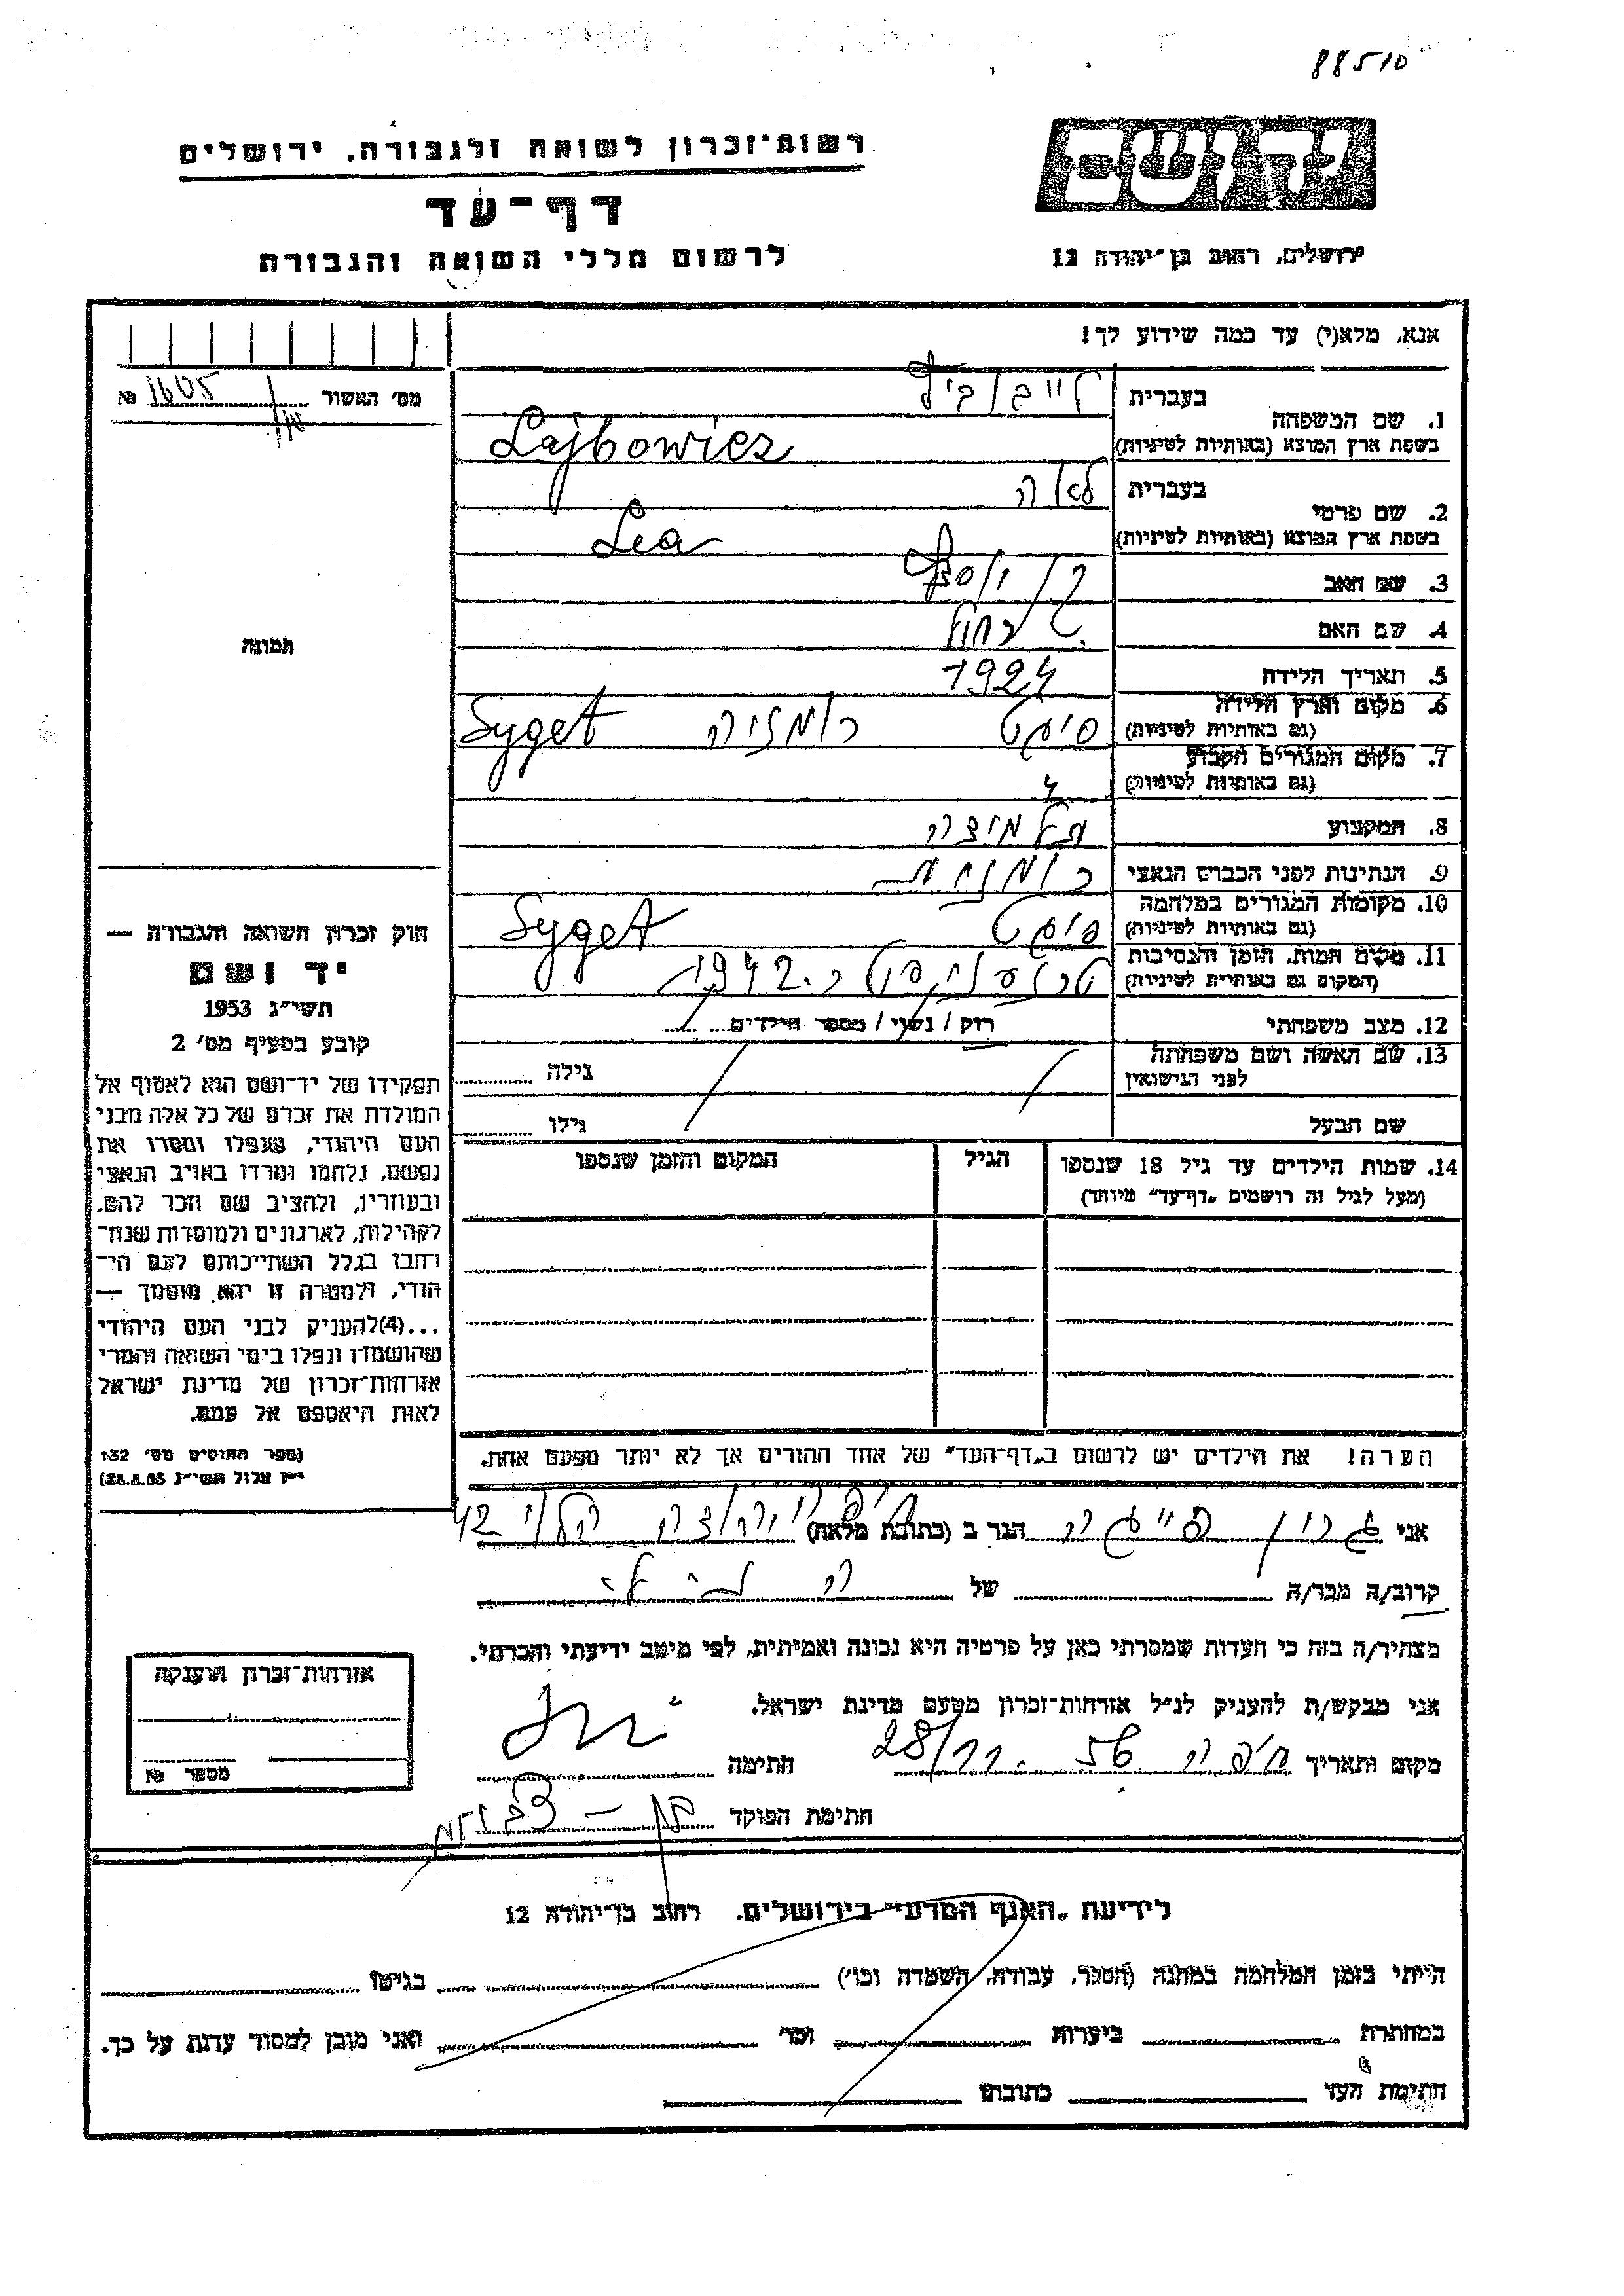 88510
רשות־זכרון לשואה ולגבורה, ירושלים
יד ושם
דף־עד
לרשום חללי השואה והגבורה
ירושלים, רחוב בן־יהודה 12
אנא, מלא(י) עד כמה שידוע לך!
מס' האשור 1605 №
1. שם המשפחה
בעברית לייבוביץ
בשפת ארץ המוצא (באותיות לטיניות) Lajbowicz
2. שם פרטי
בעברית לאה
בשפת ארץ המוצא (באותיות לטיניות) Lea
3. שם האב יוסף
4. שם האם רחל
תמונה
5. תאריך הלידה 1924
6. מקום וארץ הלידה
(גם באותיות לטיניות) סיגט רומניה Syget
7. מקום המגורים הקבוע
(גם באותיות לטיניות)
8. המקצוע תלמידה
9. הנתינות לפני הכבוש הנאצי רומנית
10. מקומות המגורים במלחמה
(גם באותיות לטיניות) סיגט Syget
11. מקום המות, הזמן והנסיבות
(המקום גם באותיות לטיניות) 1942
12. מצב משפחתי רוק / נשוי / מספר הילדים
13. שם האשה ושם משפחתה
לפני הנישואין
גילה
שם הבעל
גילו
14. שמות הילדים עד גיל 18 שנספו
(מעל לגיל זה רושמים „דף־עד" מיוחד)
הגיל
המקום והזמן שנספו
חוק זכרון השואה והגבורה —
יד ושם
תשי"ג 1953
קובע בסעיף מס' 2
תפקידו של יד־ושם הוא לאסוף אל
המולדת את זכרם של כל אלה מבני
העם היהודי, שנפלו ומסרו את
נפשם, נלחמו ומרדו באויב הנאצי
ובעוזריו, ולהציב שם וזכר להם,
לקהילות, לארגונים ולמוסדות שנח־
רחבו בגלל השתייכותם לעם הי־
הודי, ולמטרה זו יהא מוסמך —
...(4)להעניק לבני העם היהודי
שהושמדו ונפלו בימי השואה והמרי
אזרחות־זכרון של מדינת ישראל
לאות היאספם אל עמם.
(ספר החוקים מס' 132
י"ז אלול תשי"ג 28.8.53)
הערה! את הילדים יש לרשום ב„דף־העד" של אחד ההורים אך לא יותר מפעם אחת.
אני גרין פייגה הגר ב (כתובת מלאה) חיפה יהודה הלוי 42
קרוב/ה מכר/ה של
מצהיר/ה בזה כי העדות שמסרתי כאן על פרטיה היא נכונה ואמיתית, לפי מיטב ידיעתי והכרתי.
אני מבקש/ת להעניק לנ"ל אזרחות־זכרון מטעם מדינת ישראל.
מקום ותאריך חיפה 28/11.56 חתימה
חתימת הפוקד
אזרחות־זכרון הוענקה
מספר №
לידיעת „האגף המדעי" בירושלים, רחוב בן־יהודה 12
הייתי בזמן המלחמה במחנה (הסגר, עבודה, השמדה וכו') בגיטו
במחתרת ביערות וכו' ואני מוכן למסור עדות על כך.
חתימת העד כתובתו